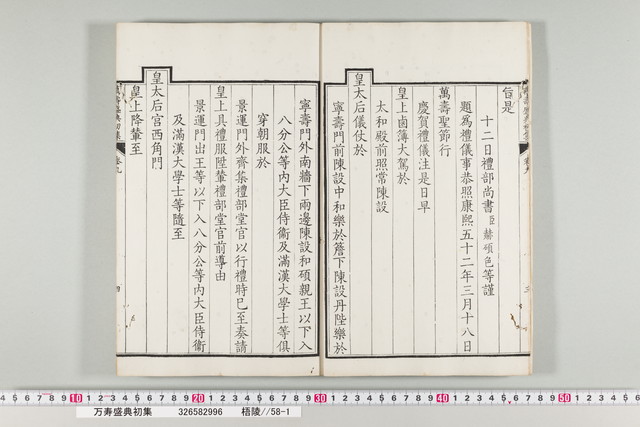 旨是
十二日禮部尚書臣赫碩色等謹
題爲禮儀事恭照康熙五十二年三月十八日
萬壽聖節行
慶賀禮儀注是日早
皇上鹵簿大駕於
太和殿前照常陳設
皇太后儀仗於
寧壽門前陳設中和樂於簷下陳設丹陛樂於
寧壽門外南牆下兩邊陳設和碩親王以下入
八分公等內大臣侍衞及滿漢大學士等俱
穿朝服於
景運門外齊集禮部堂官以行禮時巳至奏請
皇上具禮服陞輦禮部堂官前導由
景運門出王等以下入八分公等內大臣侍衞
及滿漢大學士等隨至
皇太后宮西角門
皇上降輦至
10 20 30 40 50
万寿盛典初集 326582996 梧陵//58-1